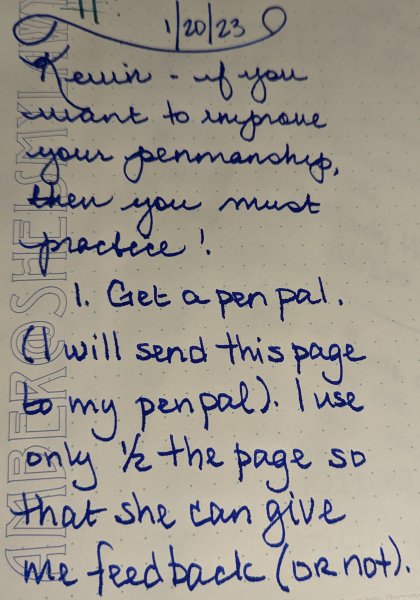 1/20/23
Kevin - if you
want to improve
your penmanship,
then you must
practice!
1. Get a pen pal.
(I will send this page
to my penpal). I use
only 1/2 the page so
that she can give
me feedback (or not).